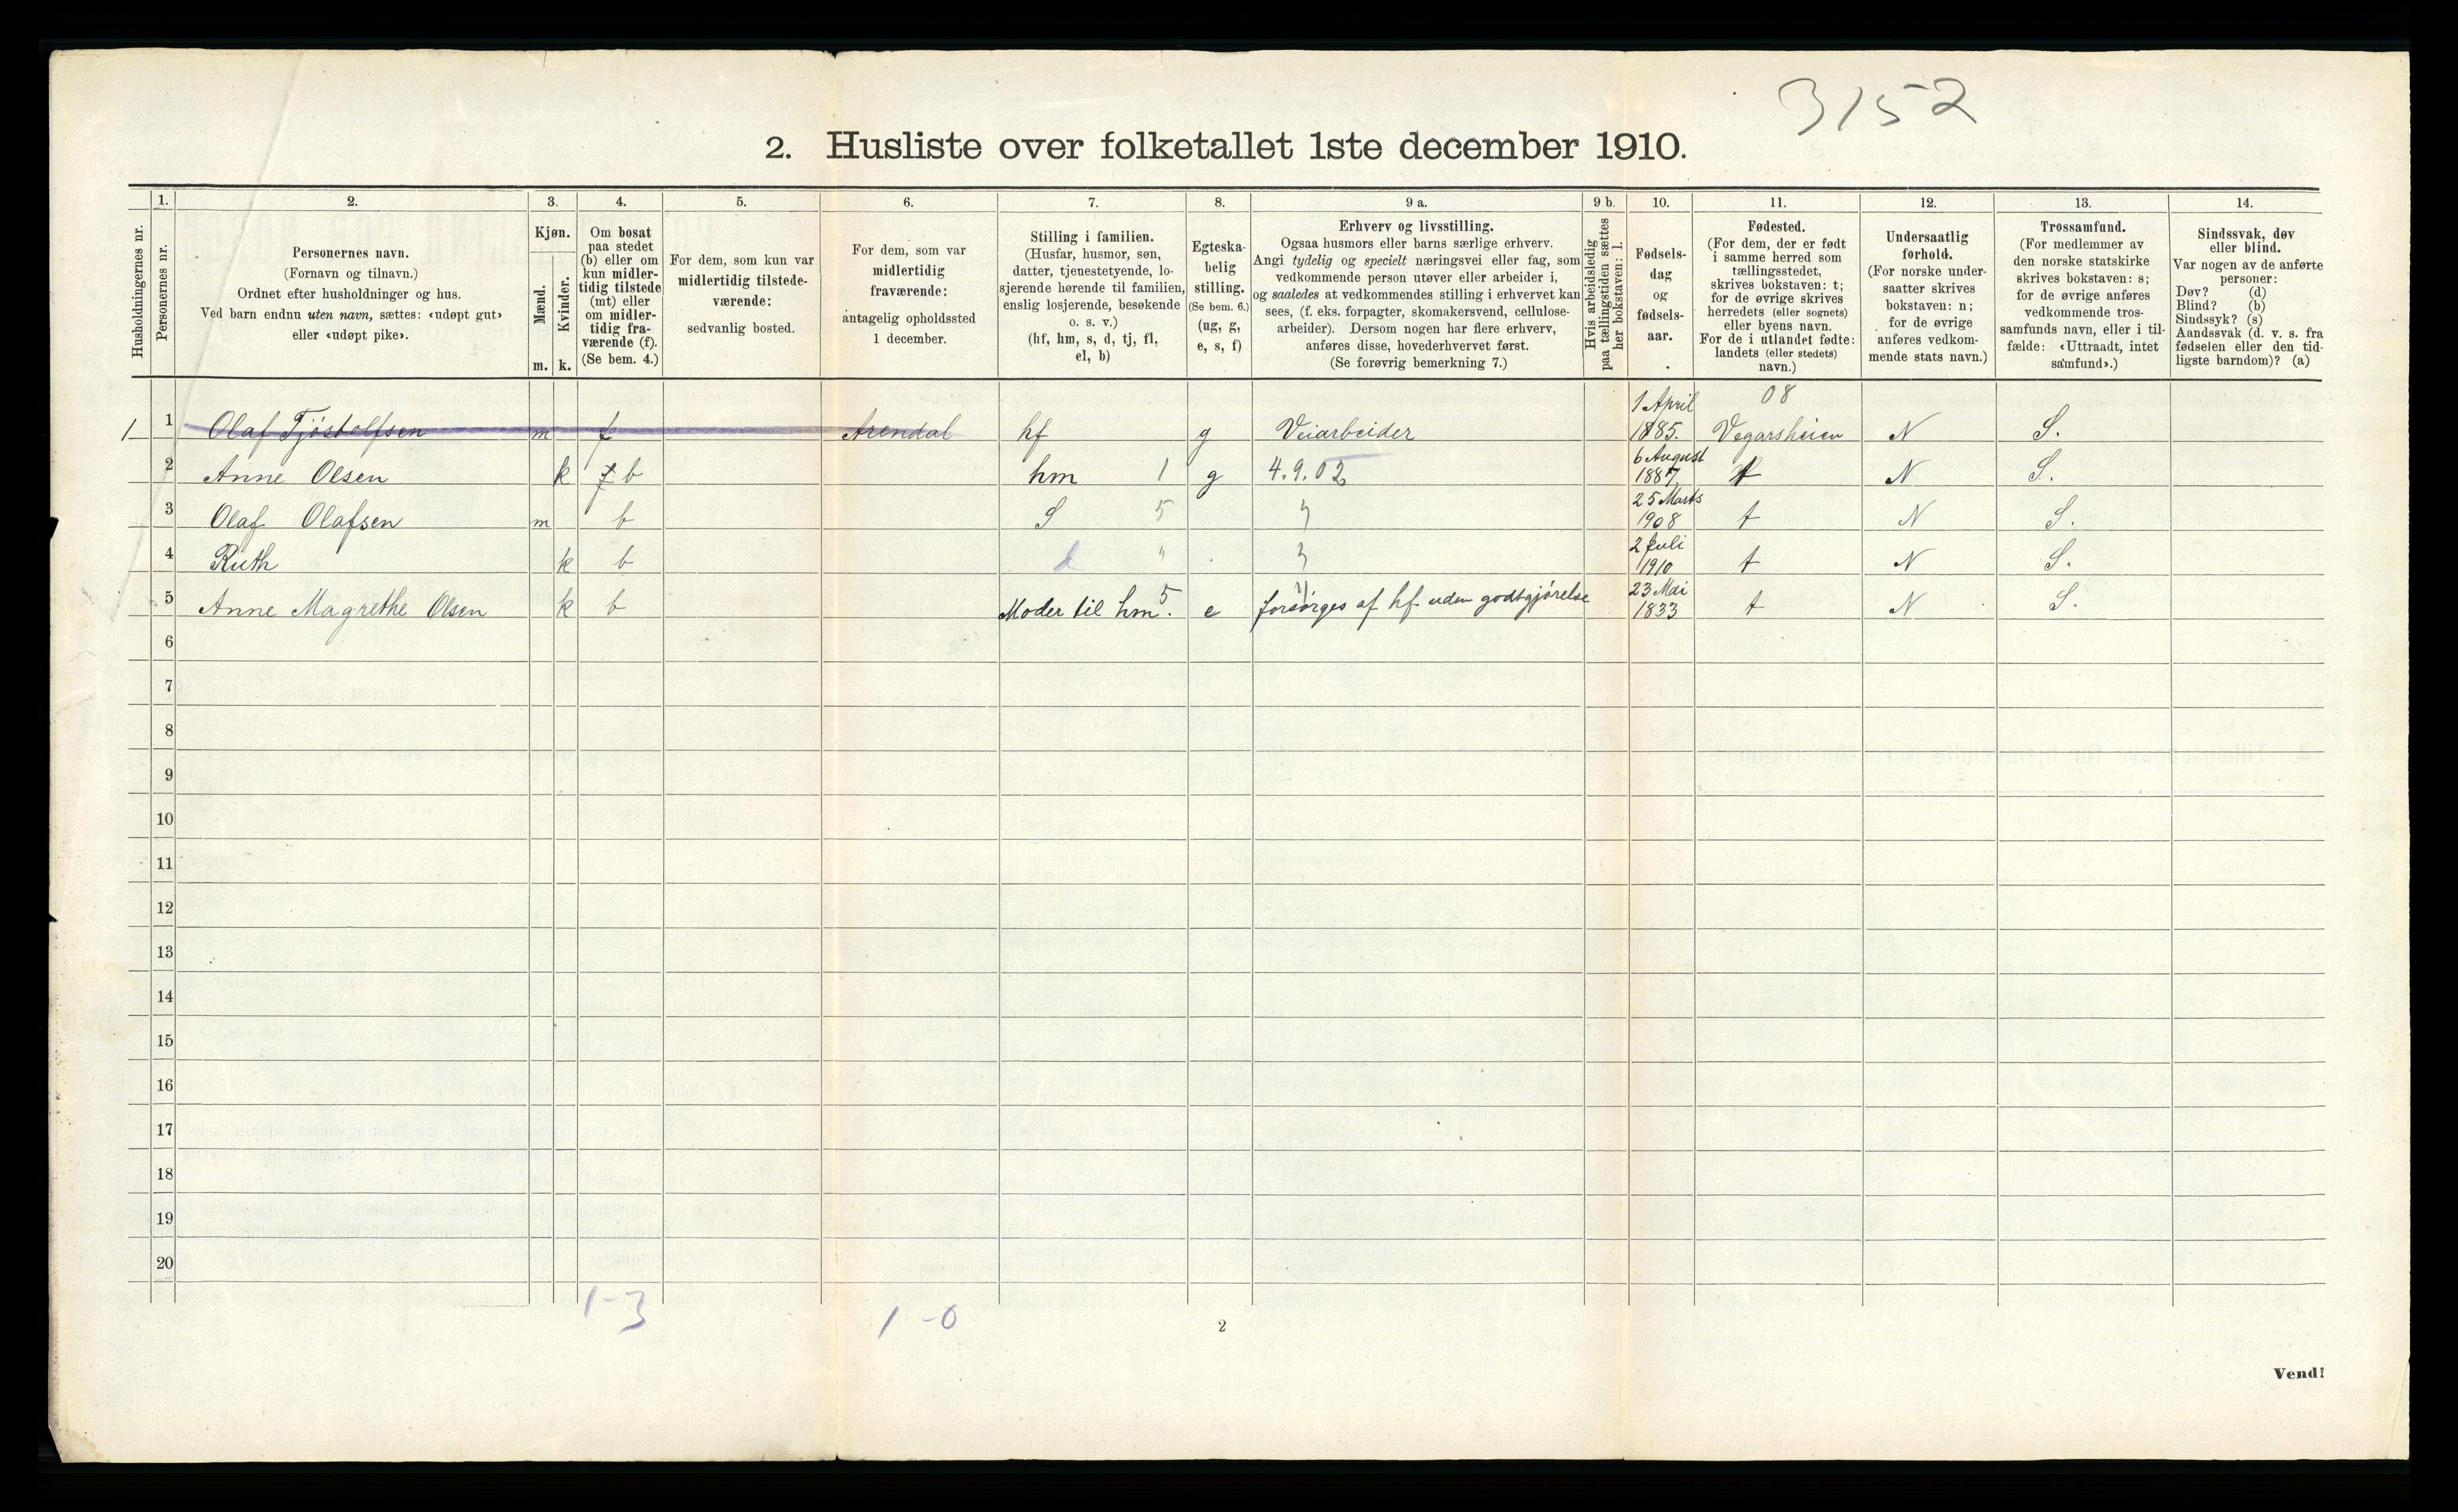 3152
2. Husliste over folketallet 1ste december 1910.
Husholdningernes nr.
1.
Personernes nr.
2.
Personernes navn.
(Fornavn og tilnavn.)
Ordnet efter husholdninger og hus.
Ved barn endnu uten navn, sættes: «udøpt gut»
eller «udøpt pike».
3.
Kjøn.
Mænd.
Kvinder.
m. k.
4.
Om bosat
paa stedet
(b) eller om
kun midler-
tidig tilstede
(mt) eller
om midler-
tidig fra-
værende (f).
(Se bem. 4.)
5.
For dem, som kun var
midlertidig tilstede-
værende:
sedvanlig bosted.
6.
For dem, som var
midlertidig
fraværende:
antagelig opholdssted
1 december.
7.
Stilling i familien.
(Husfar, husmor, søn,
datter, tjenestetyende, lo-
sjerende hørende til familien,
enslig losjerende, besøkende
o. s. v.)
(hf, hm, s, d, tj, fl,
el, b)
8.
Egteska-
belig
stilling.
(Se bem. 6.)
(ug, g,
e, s, f)
9 a.
Erhverv og livsstilling.
Ogsaa husmors eller barns særlige erhverv.
Angi tydelig og specielt næringsvei eller fag, som
vedkommende person utøver eller arbeider i,
og saaledes at vedkommendes stilling i erhvervet kan
sees, (f. eks. forpagter, skomakersvend, cellulose-
arbeider). Dersom nogen har flere erhverv,
anføres disse, hovederhvervet først.
(Se forøvrig bemerkning 7.)
9 b.
Hvis arbeidsledig
paa tællingstiden sættes
her bokstaven: l.
10.
Fødsels-
dag
og
fødsels-
aar.
11.
Fødested.
(For dem, der er født
i samme herred som
tællingsstedet,
skrives bokstaven: t;
for de øvrige skrives
herredets (eller sognets)
eller byens navn.
For de i utlandet fødte:
landets (eller stedets)
navn.)
12.
Undersaatlig
forhold.
(For norske under-
saatter skrives
bokstaven: n;
for de øvrige
anføres vedkom-
mende stats navn.)
13.
Trossamfund.
(For medlemmer av
den norske statskirke
skrives bokstaven: s;
for de øvrige anføres
vedkommende tros-
samfunds navn, eller i til-
fælde: «Uttraadt, intet
samfund».)
14.
Sindssvak, døv
eller blind.
Var nogen av de anførte
personer:
Døv? (d)
Blind? (b)
Sindssyk? (s)
Aandssvak (d. v. s. fra
fødselen eller den tid-
ligste barndom)? (a)
1 1 Olaf Tjöstolfsen m f Arendal hf g Veiarbeider 1 April 1885. 08 Vegarsheien N S.
2 Anne Olsen k f b hm 1 g 4.9.02 6 August 1887. t N S.
3 Olaf Olafsen m b S 5 25 Marts 1908 t N S.
4 Ruth k b d " 2 Juli 1910 t N S.
5 Anne Magrethe Olsen k b Moder til hm. 5 e forsørges af hf uden godtgjørelse 23 Mai 1833 t N S.
6
7
8
9
10
11
12
13
14
15
16
17
18
19
20
1-3
1-0
2
Vend!